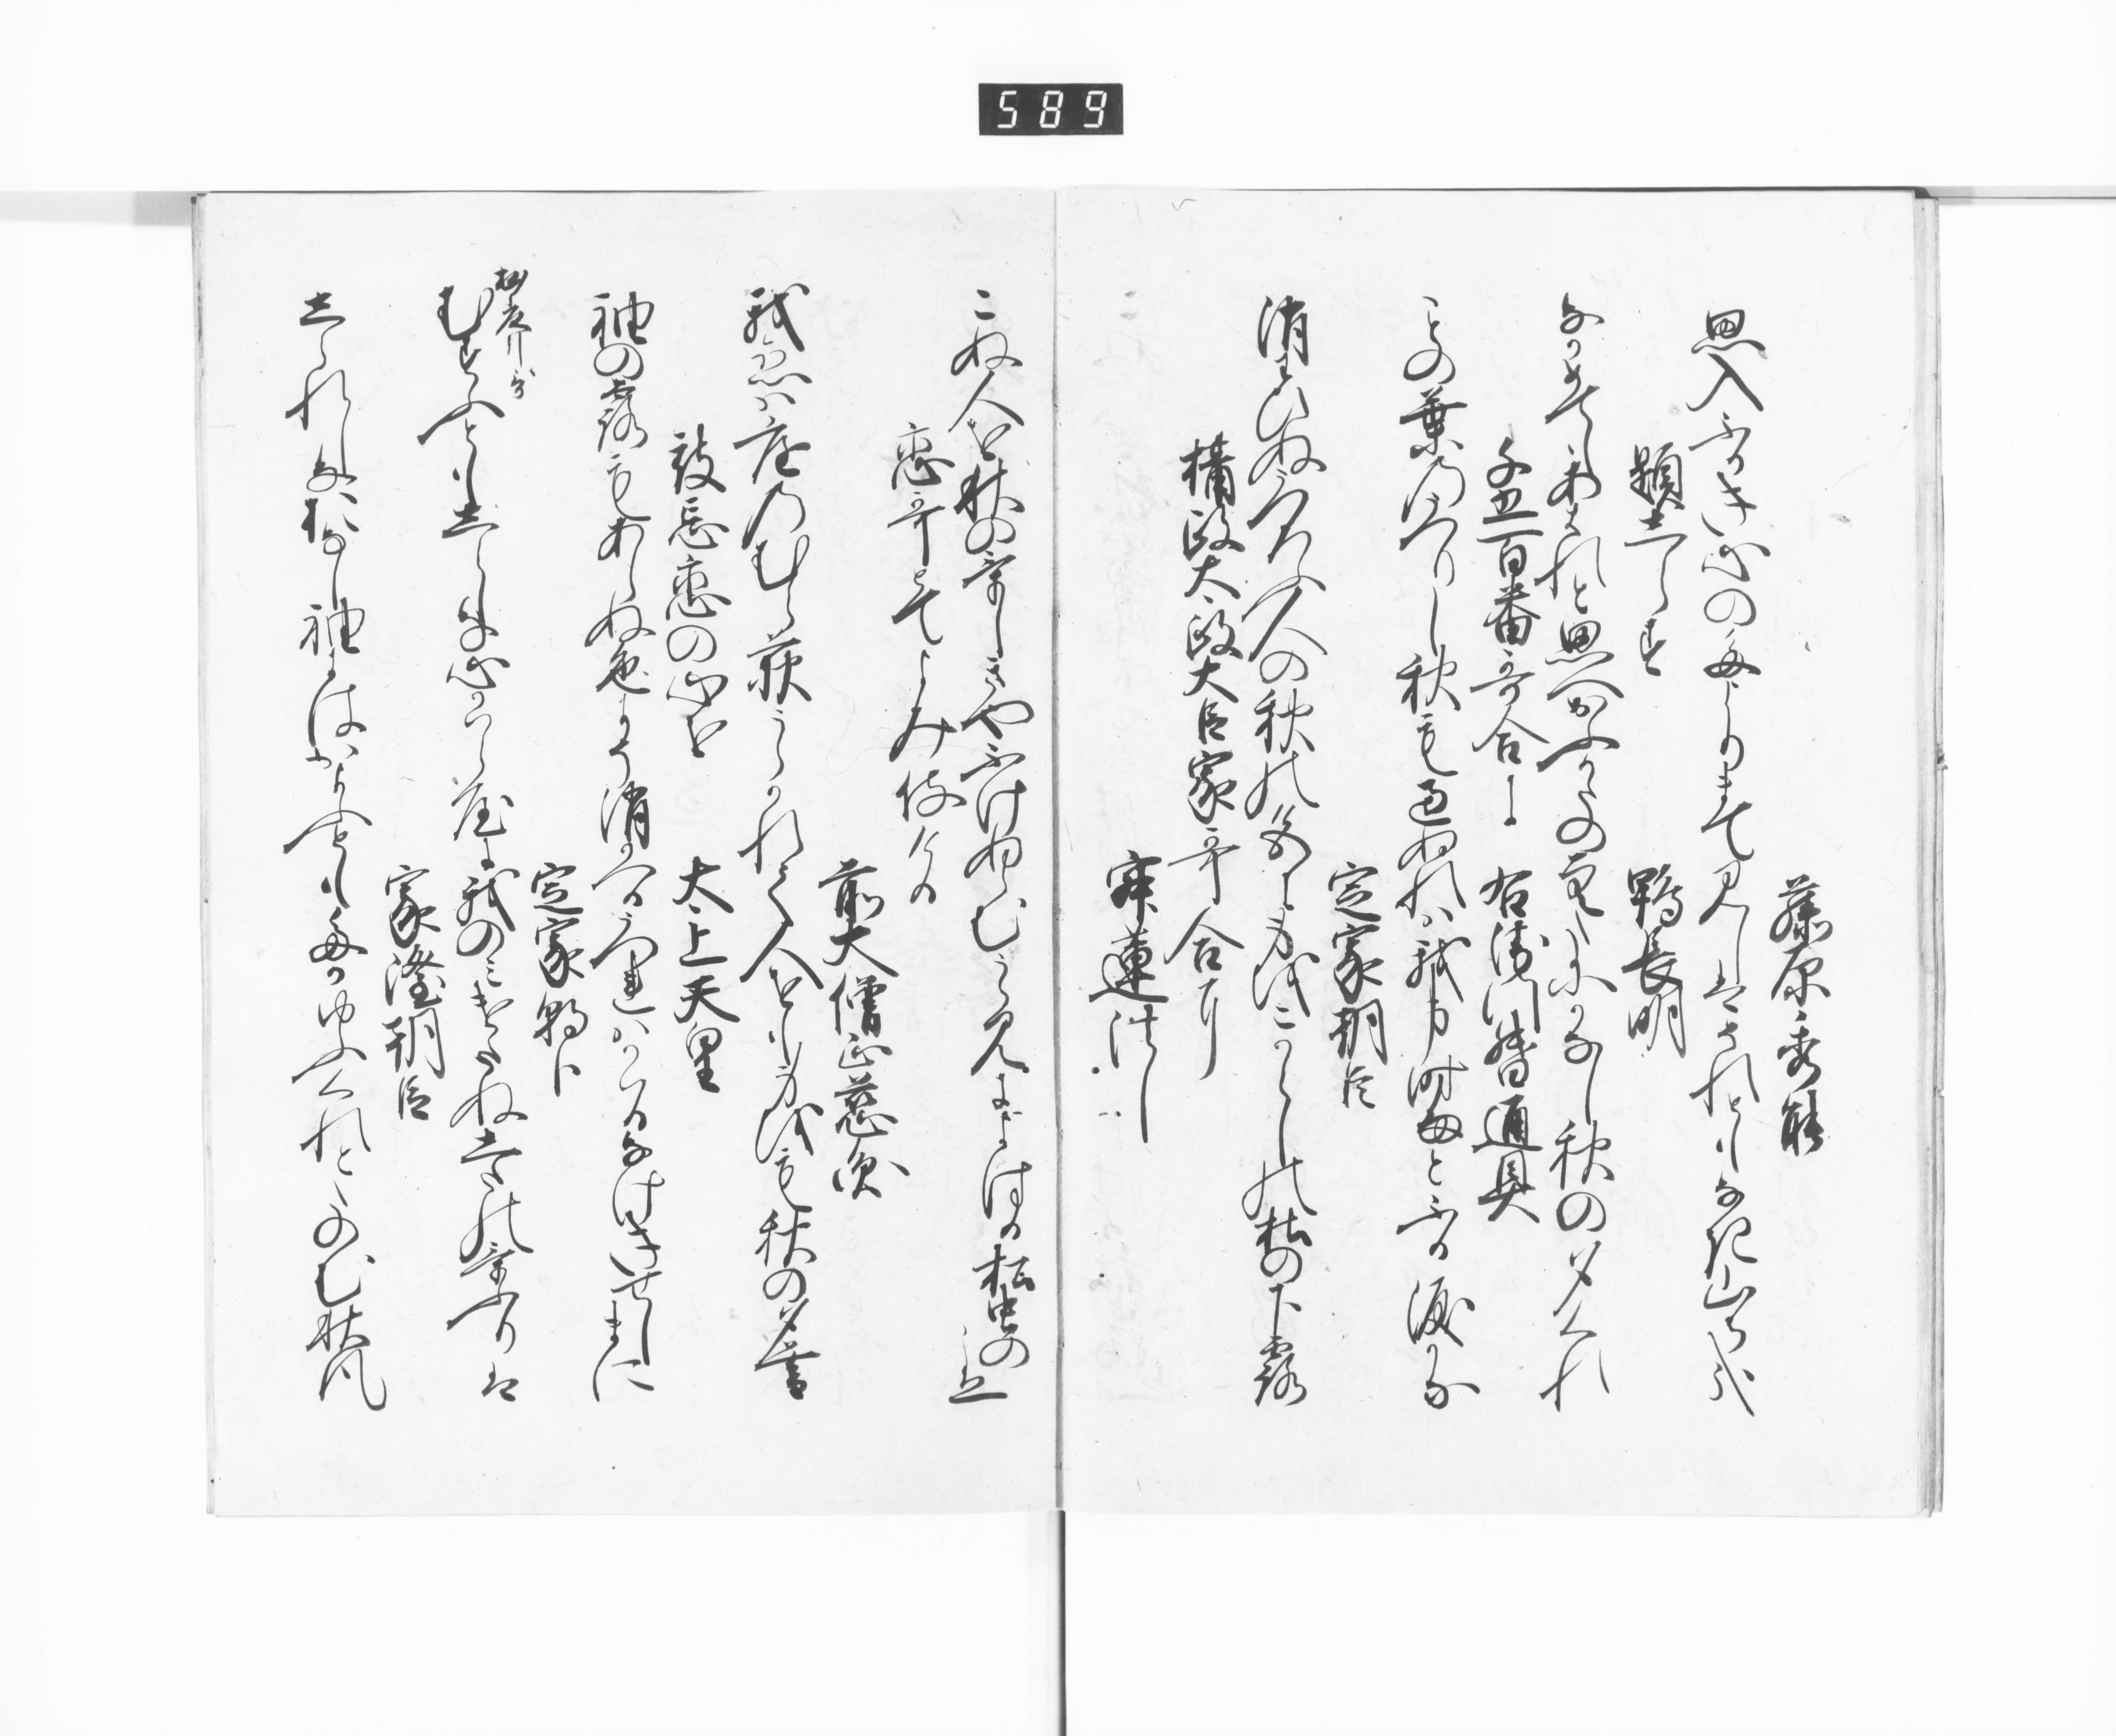 589
藤原秀能
思入ふかき心のたよりまて見しはそれともなき山ち哉
題しらす　鴨長明
なかめてもあはれと思へおほかたの空たにかなし秋の夕くれ
千五百番哥合に　右衛門督通具
ことの葉のうつりし秋も過ぬれは我身時雨とふる涙かな
定家朝臣
消わひぬうつろふ人の秋の色に身をこからしの杜の下露
摂政太政大臣家哥合に
寂蓮法し
こぬ人を秋のけしきやふけぬらむうらみによはる松虫の声
恋哥とてよみ侍ける
前大僧正慈円
我恋は庭のむら萩うらかれて人をも身をも秋の夕暮
被忘恋の心を　太上天皇
袖の露もあらぬ色にそ消かへるうつれはかはるなけきせしまに
定家朝臣
むせふともしらし心のかはら屋に我のみけたぬ下の煙は
家隆朝臣
しられしな おなし袖にはかよふともたか夕くれとたのむ秋風